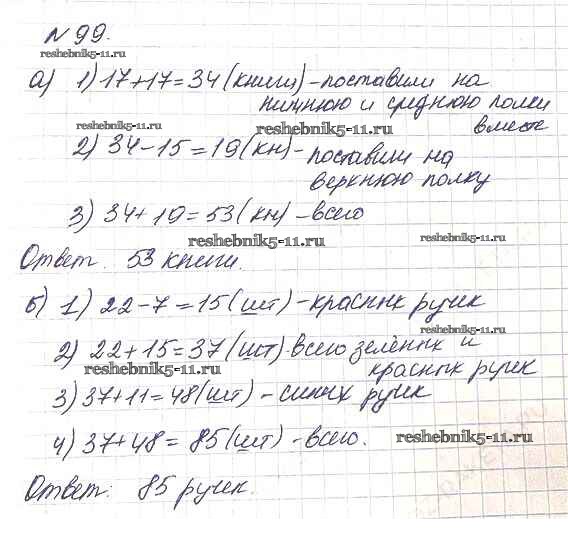 № 99.
reshebnik5-11.ru
а) 1) 17+17=34 (книги) - поставили на
нижнюю и среднюю полки
reshebnik5-11.ru reshebnik5-11.ru вместе
2) 34-15=19(кн)- поставили на
верхнюю полку
3) 34+19=53(кн) -всего
reshebnik5-11.ru reshebnik5-11.ru
Ответ. 53 книги.
б) 1) 22-7=15(шт) -красных ручек
reshebnik5-11.ru
2) 22+15=37(шт) всего зелёных и
reshebnik5-11.ru красных ручек
3) 37+11=48(шт) - синих ручек
4) 37+48=85(шт) -всего. reshebnik5-11.ru
Ответ: 85 ручек.